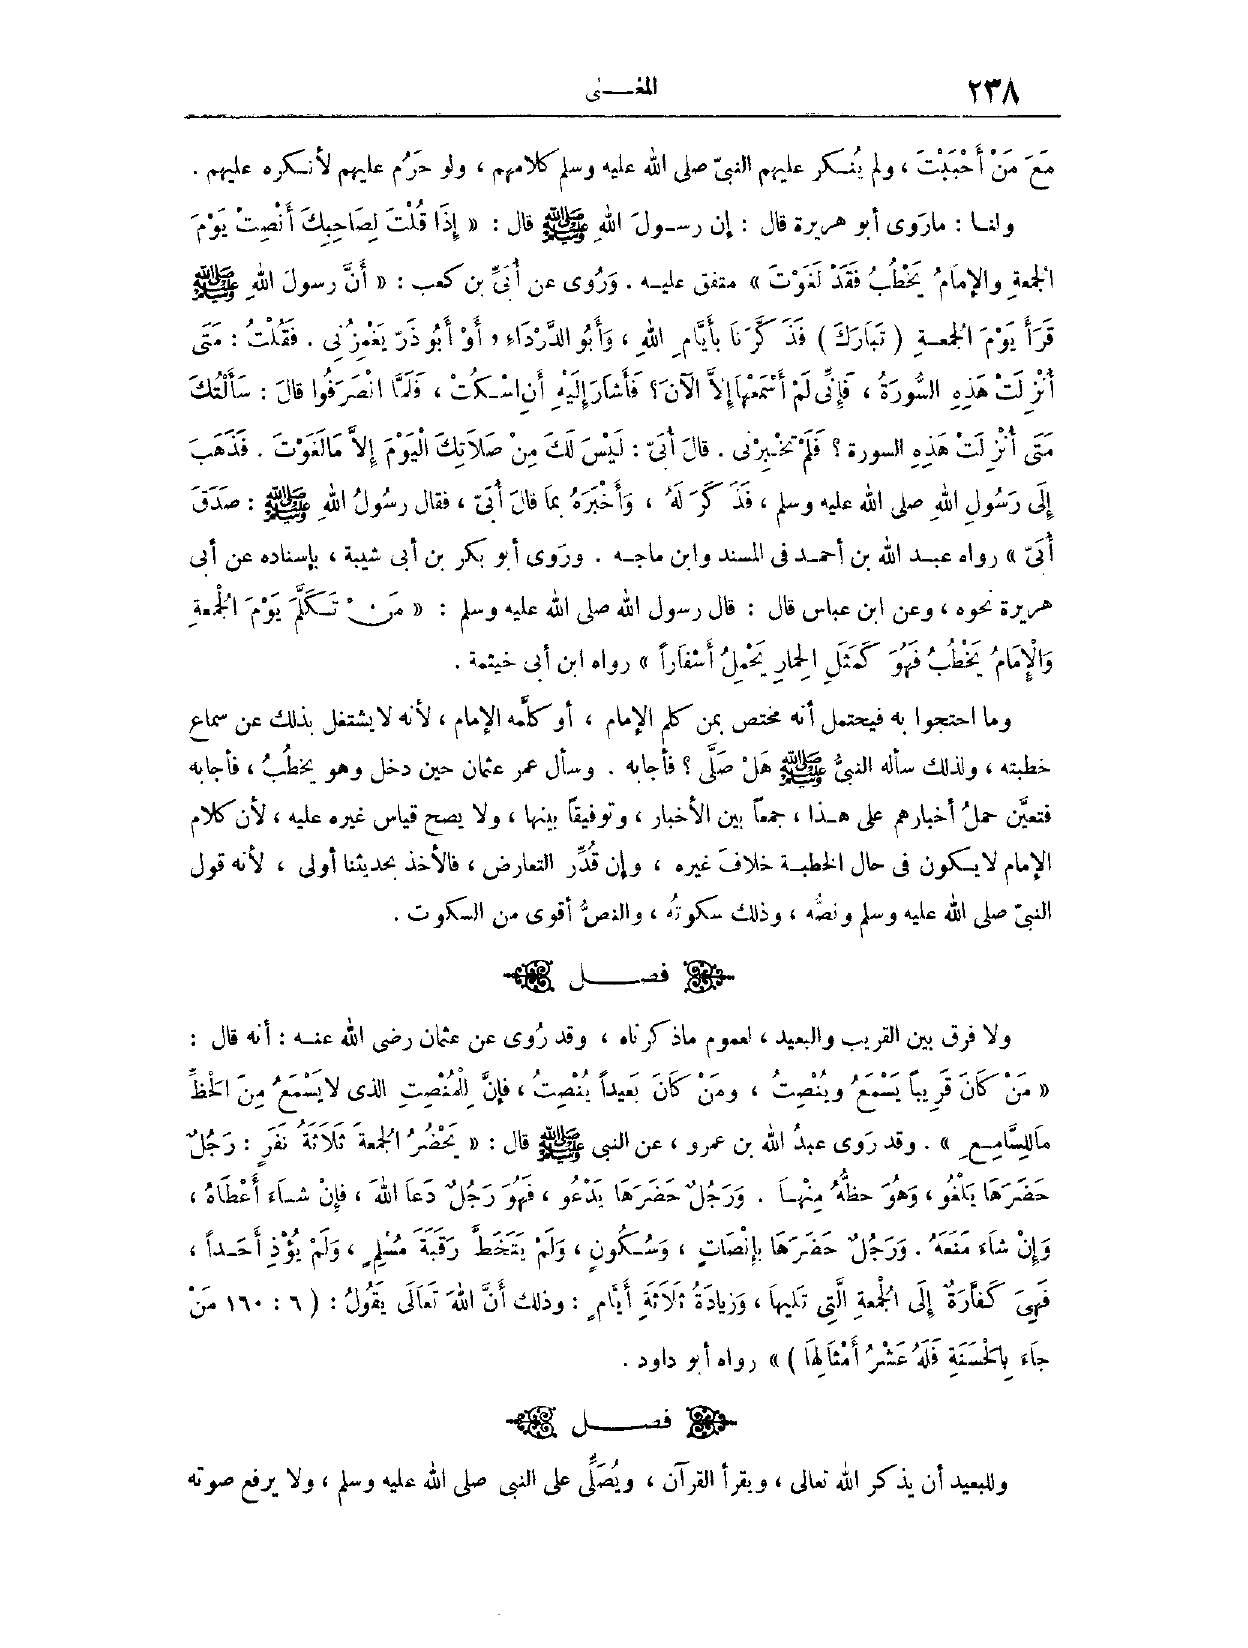 ٢٣٨ المغـــنى
مَعَ مَنْ أَحْبَبْتَ ، ولم يُنـكر عليهم النبىّ صلى الله عليه وسلم كلامهم ، ولو حَرُم عليهم لأنـكره عليهم .
ولنـا : مارَوى أبو هريرة قال : إن رسـولَ اللهِ ﷺ قال : « إِذَا قُلْتَ لِصَاحِبِكَ أَنْصِتْ يَوْمَ
الجمعةِ والإمَامُ يَخْطُبُ فَقَدْ لَغَوْتَ » متفق عليـه . وَرُوى عن أُبَىِّ بن كعب : « أَنَّ رسولَ اللهِ ﷺ
قَرَأَ يَوْمَ الجمعـةِ ( تَبَارَكَ ) فَذَ كَّرَنَا بأَيَّامِ اللهِ ، وَأَبُو الدَّرْدَاءِ ، أَوْ أَبُو ذَرّ يَغْمِزُنِى . فَقُلْتُ : مَتَى
أُنْزِلَتْ هَذِهِ السُّورَةُ ، فَإِنِّى لَمْ أَسْمَعْهَا إِلاَّ الآنَ؟ فَأَشَارَ إِلَيْهِ أَنِ اسْـكُتْ ، فَلَمَّا انْصَرَفُوا قالَ : سَأَلْتُكَ
مَتَى أُنْزِلَتْ هَذِهِ السورة ؟ فَلَمْ تَخْـبِرْنى . قالَ أُبَىّ : لَيْسَ لَكَ مِنْ صَلَاتِكَ الْيَوْمَ إِلاَّ مَالَغَوْتَ . فَذَهَبَ
إِلَى رَسُولِ اللهِ صلى الله عليه وسلم ، فَذَ كَّرَ لَهُ ، وَأَخْبَرَهُ بمَا قالَ أُبَىّ ، فقال رسُولُ اللهِ ﷺ : صَدَقَ
أُبَىّ » رواه عبـد الله بن أحمـد فى المسند وابن ماجـه . وروَى أبو بكر بن أبى شيبة ، بإسناده عن أبى
هريرة نحوه ، وعن ابن عباس قال : قال رسول الله صلى الله عليه وسلم : « مَنْ تَـكَلَّمَ يَوْمَ الجُمعةِ
وَالْإِمَامُ يَخْطُبُ فَهُوَ كَمَثَلِ الحِمارِ يَحْمِلُ أَسْفَاراً » رواه ابن أبى خيثمة .
وما احتجوا به فيحتمل أنه مختص بمن كلم الإمام ، أو كلَّمه الإمام ، لأنه لايشتغل بذلك عن سماع
خطبته ، ولذلك سأله النبىُّ ﷺ هَلْ صَلَّى ؟ فأجابه . وسأل عمر عثمان حين دخل وهو يخطُبُ ، فأجابه
فتعيَّن حملُ أخبارهم على هـذا ، جمعاً بين الأخبار ، وتوفيقاً بينها ، ولا يصح قياس غيره عليه ، لأن كلام
الإمام لايـكون فى حال الخطبـة خلافَ غيره ، وإن قُدِّر التعارض ، فالأخذ بحديثنا أولى ، لأنه قول
النبىّ صلى الله عليه وسلم ونصُّه ، وذلك سكوتُه ، والنصُّ أقوى من السكوت .
فصـــل
ولا فرق بين القريب والبعيد ، لعموم ماذكرناه ، وقد رُوى عن عثمان رضى الله عنـه : أنه قال :
« مَنْ كَانَ قَرِيباً يَسْمَعُ وينْصِتُ ، ومَنْ كَانَ بَعيداً يُنْصِتُ ، فإنَّ لِلْمُنْصِتِ الذى لايَسْمَعُ مِنَ الحَظِّ
مَالِلسَّامِـعِ » . وقد رَوى عبدُ الله بن عمرو ، عن النبى ﷺ قال : « يَحْضُرُ الجُمعةَ ثَلَاثَةُ نَفَرٍ : رَجُلٌ
حَضَرَهَا يَلْغُو ، وَهُوَ حظُّهُ مِنْهـَا . وَرَجُلٌ حَضَرَهَا يَدْعُو ، فَهُوَ رَجُلٌ دَعَا اللهَ ، فإنْ شـاءَ أَعْطَاهُ ،
وَإِنْ شاءَ مَنَعَهُ . وَرَجُلٌ حَضَرَهَا بِإِنْصَاتٍ ، وَسُـكُونٍ ، وَلَمْ يَتَخَطَّ رَقَبَةَ مُسْلِمٍ ، وَلَمْ يُؤْذِ أَحَـداً ،
فَهِىَ كَفَّارَةٌ إِلَى الجُمعةِ الَّتِى تَلِيهَا ، وَزِيادَةُ ثَلَاثَةِ أَيَّامٍ : وذلك أَنَّ اللهَ تَعَالَى يَقُولُ : ( ٦ : ١٦٠ مَنْ
جَاءَ بِالحَسَنَةِ فَلَهُ عَشْرُ أَمْثَالِهَا ) » رواه أبو داود .
فصـــل
وللبعيد أن يذكر الله تعالى ، ويقرأ القرآن ، ويُصَلِّى على النبى صلى الله عليه وسلم ، ولا يرفع صوته